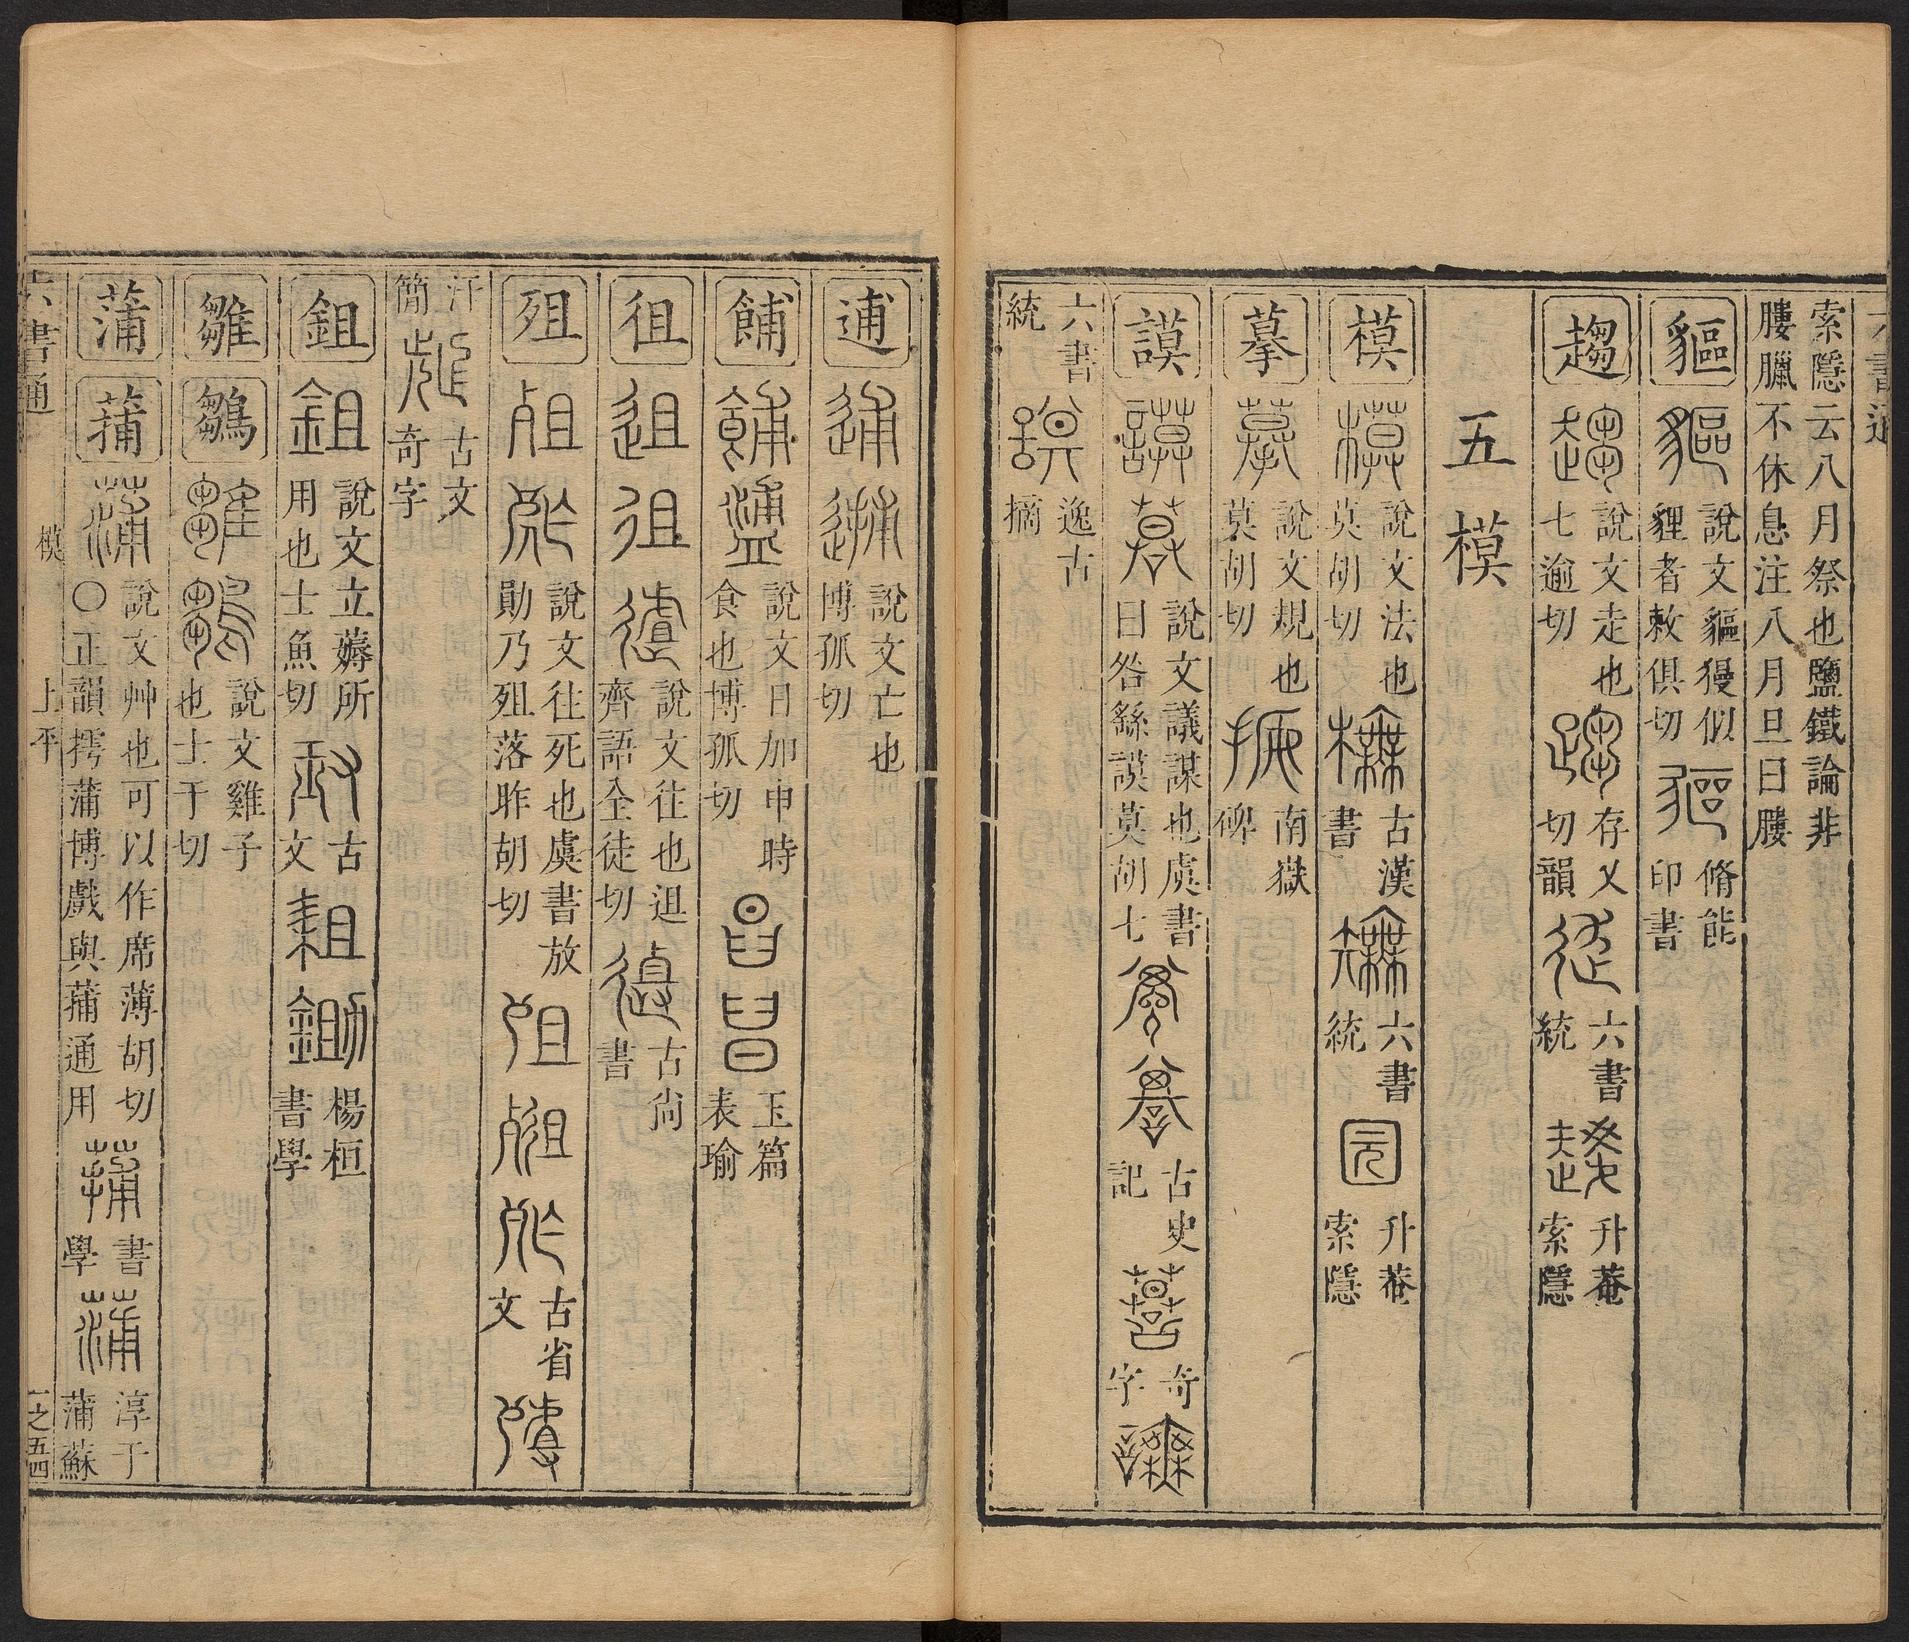 索隱云八月祭也鹽鐵論非
膢臘不休息注八月旦曰膢
貙 說文貙獌似
貍者敕俱切 脩能
印書
趨 說文走也
七逾切 存乂
切韻 六書
統 升菴
索隱
五模
模 說文法也
莫胡切 古漢
書 六書
統 升菴
索隱
摹 說文規也
莫胡切 南嶽
碑
謨 說文議謀也虞書
曰咎繇謨莫胡七 古史
記 奇
字
六書
統 逸古
摘
逋 說文亡也
博孤切
餔 說文日加申時
食也博孤切 玉篇
表瑜
徂 說文往也迌
齊語全徒切 古尚
書
殂 說文往死也虞書放
勛乃殂落昨胡切 古省
文
汗
簡 古文
奇字
鉏 說文立薅所
用也士魚切 古
文 楊桓
書學
雛 鶵 說文雞子
也士于切
蒲 蒱 說文艸也可以作席薄胡切
〇正韻摴蒲博戲與蒱通用 書
學 淳于
蒲蘇
六書通 模 上平 一之五四